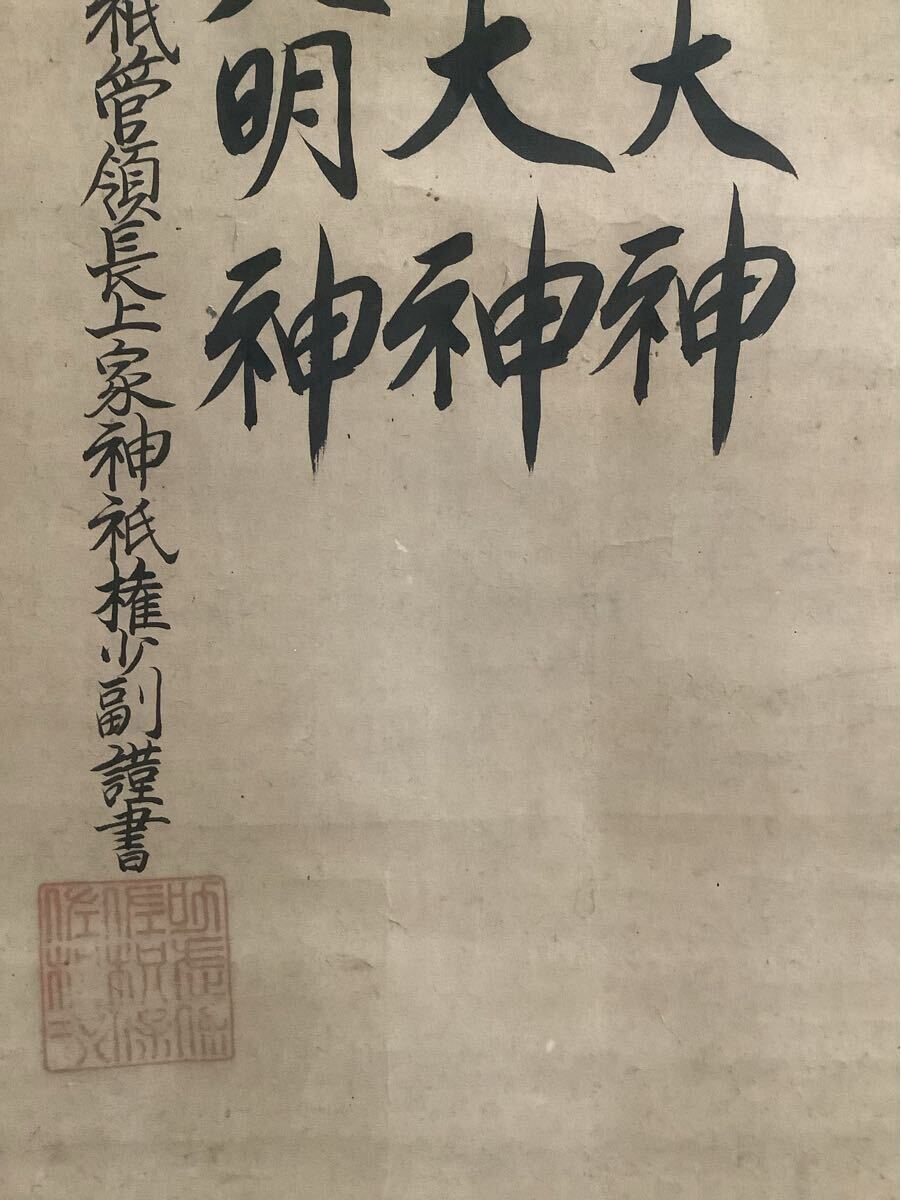 大神
大神
明神
祇管領長上家神祇権少副謹書